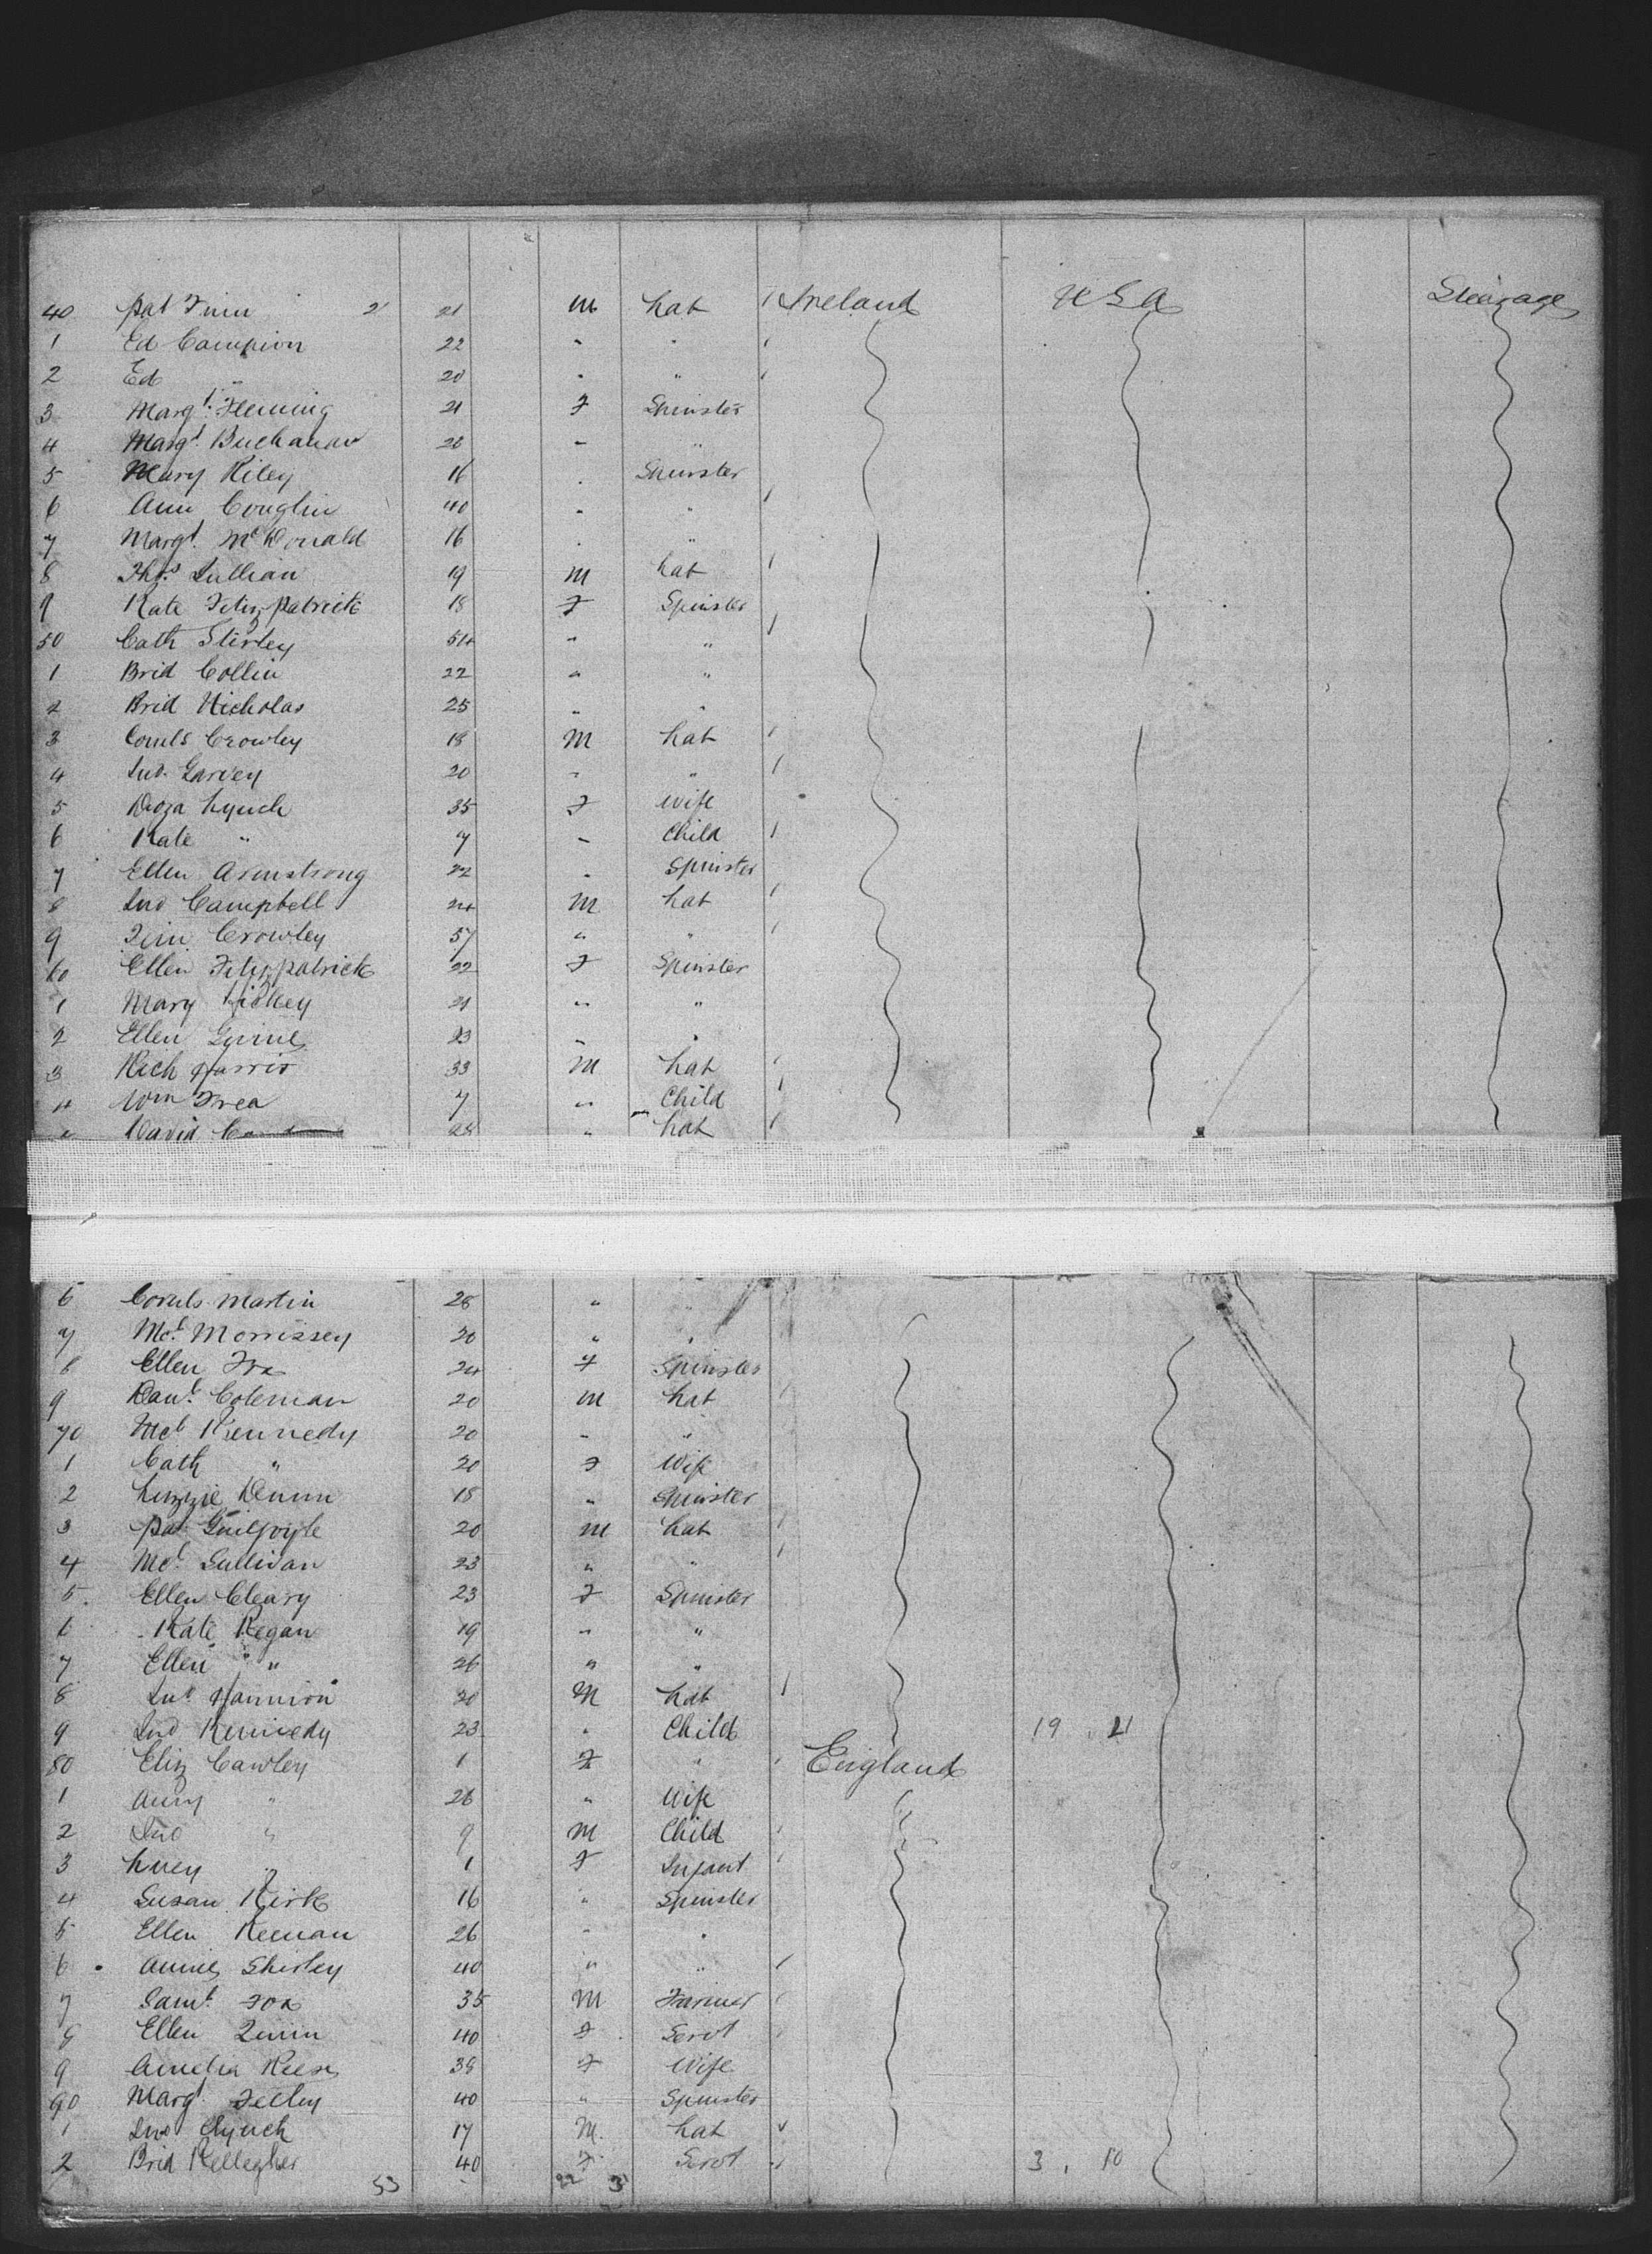 40 Pat Finn 21 21 m Lab Ireland USA Steerage
1 Ed Campion 22 " "
2 Ed " 20 " "
3 Margt. Fleming 21 F Spinster
4 Margt. Buchanan 20 " "
5 Mary Riley 16 " Spinster
6 Ann Couglin 40 " "
7 Margt. McDonald 16 " "
8 Thos. Sullian 19 m Lab
9 Kate Fitzpatrick 18 F Spinster
50 Cath Stirley 54 " "
1 Brid Collin 22 " "
2 Brid Nicholas 25 " "
3 Cornls Crowley 18 M Lab
4 Jno. Garvey 20 " "
5 Lynch 35 F Wife
6 Kate " 7 " Child
7 Ellen Armstrong 22 " Spinster
8 Jno Campbell 24 M Lab
9 Tim Crowley 57 " "
60 Ellen Fitzpatrick 22 F Spinster
1 Mary 21 " "
2 Ellen 23 " "
3 Rich Harris 33 M Lab
4 Wm Frea 7 " Child
David 28 " Lab
6 Cornls Martin 28 "
7 Mcl. Morrissey 20 " "
8 Ellen Fox 24 F Spinster
9 Danl. Coleman 20 m Lab
70 Mcl Kennedy 20 " "
1 Cath " 20 F Wife
2 Lizzie Dunn 18 " Spinster
3 Pat Guilfoyle 20 m Lab
4 Mcl. Sullivan 23 " "
5 Ellen Cleary 23 F Spinster
6 Kate Regan 19 " "
7 Ellen " 26 " "
8 Jno. Hannion 20 M Lab
9 Jno Kennedy 23 " Child 19 . 21
80 Eliz Cawley 1 F " England
1 Anny " 26 " Wife
2 Jno " 9 M Child
3 Lucy " 1 F Infant
4 Susan Kirk 16 " Spinster
5 Ellen Keenan 26 " "
6 Annie Shirley 40 " "
7 Saml. Fox 35 M Farmer
8 Ellen Quinn 40 F Servt
9 Amelia Rees 38 F Wife
90 Margt. Feeley 40 " Spinster
1 Jno Lynch 17 M. Lab
2 Brid Kellegher 40 F Servt 3 . 10
53 22 3